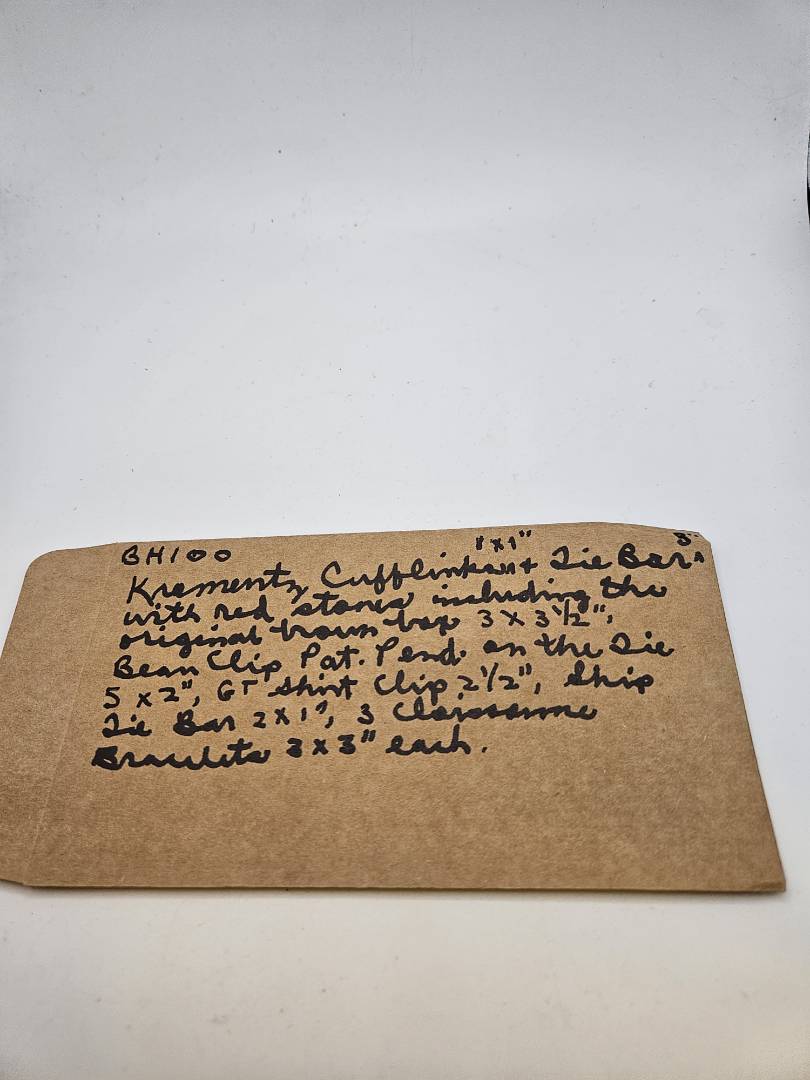 BH100
"x1" 3"
Krementz Cufflinks + Tie Bar
with red stones including the
original brown box 3 x 3 1/2",
Bean Clip Pat. Pend. on the Tie
5 x 2", GT Shirt Clip 2 1/2", Ship
Tie Bar 2 x 1", 3 Cloissonne
Bracelets 3 x 3" each.